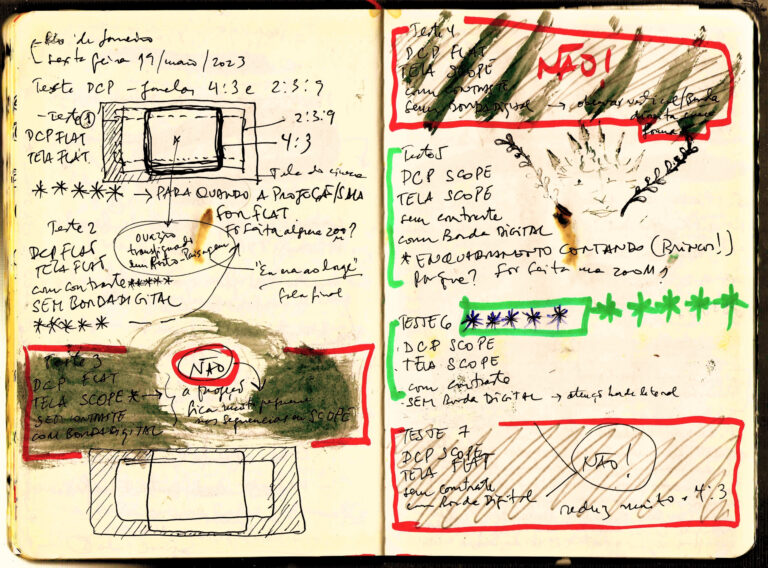 Rio de Janeiro
sexta feira 19/maio/2023
Teste DCP - Janelas 4:3 e 2:3:9
- Teste 1
DCP FLAT
TELA FLAT
2:3:9
4:3
Tela do cinema
***** → PARA QUANDO A PROJEÇÃO/SALA
FOR FLAT
Foi feita alguma zoom?
Teste 2
DCP FLAT
TELA FLAT
com contraste *****
SEM BORDA DIGITAL
*****
transfigurado
em Rosto-Paisagem
fala final
Teste 3
DCP FLAT
TELA SCOPE * →
SEM CONTRASTE
COM BORDA DIGITAL
NÃO
a projeção
fica muito pequena
nas sequências em SCOPE
Teste 4
DCP FLAT
TELA SCOPE
com contraste
sem BORDA DIGITAL →
NÃO!
Teste 5
DCP SCOPE
TELA SCOPE
sem contraste
com Borda DIGITAL
* ENQUADRAMENTO CONTANDO (BRINCO!)
Por que? Foi feita uma zoom
TESTE 6 ***** *****
DCP SCOPE
TELA SCOPE
com contraste
SEM Borda DIGITAL →
TESTE 7
DCP SCOPE
TELA FLAT
sem contraste
com Borda Digital
NÃO!
reduz muito o 4:3